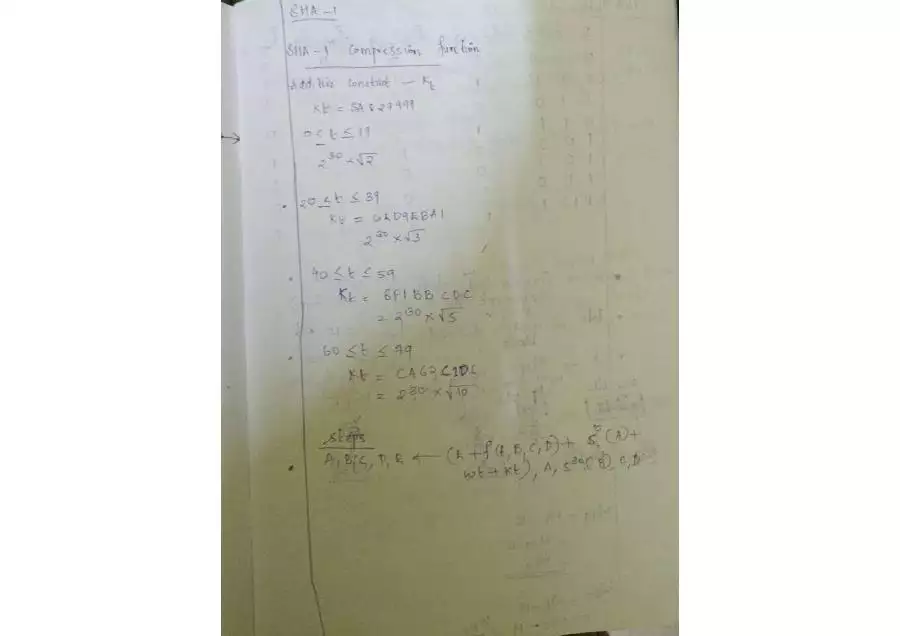 SHA-1
SHA-1 Compression function
Additive Constant - Kt
Kt = 5A827999
0 ≤ t ≤ 19
2^30 × √2
• 20 ≤ t ≤ 39
Kt = 6ED9EBA1
2^30 × √3
• 40 ≤ t ≤ 59
Kt = 8F1BBCDC
= 2^30 × √5
• 60 ≤ t ≤ 79
Kt = CA62C1DC
= 2^30 × √10
Steps
• A, B, C, D, E ← (E + f(t, B, C, D) + S^5(A) +
Wt + Kt), A, S^30(B), C, D